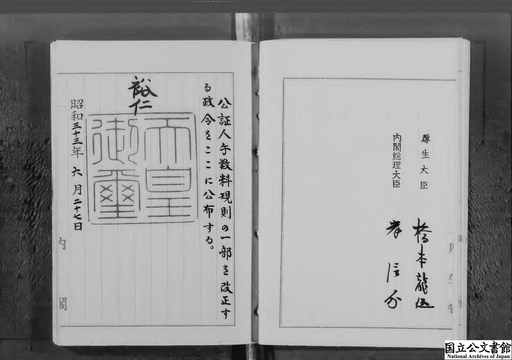 厚生大臣
橋本龍伍
内閣総理大臣
岸信介
公証人手数料規則の一部を改正す
る政令をここに公布する。
裕仁
天皇
御璽
昭和三十三年六月二十七日
内閣
国立公文書館
National Archives of Japan